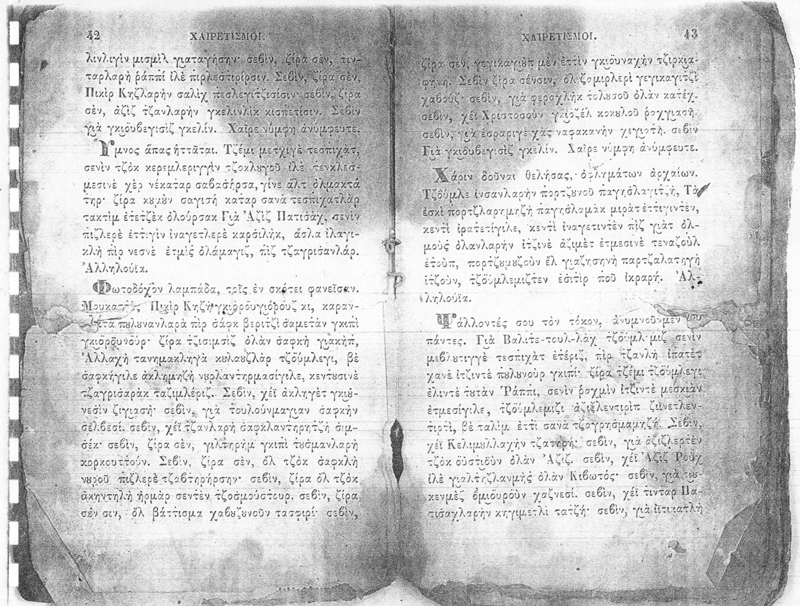 42 ΧΑΙΡΕΤΙΣΜΟΙ.
λινλιγὶν μισμὶλ γιαταγήσην· σεβὶν, ζίρα σὲν, τιν-
ταρλαρὴ ῥάππι ἰλὲ πιρλεστιρίρσιν. Σεβὶν, ζίρα σὲν,
Πικὶρ Κηζλαρὴν σαλὶχ πεσλεγιτζισίσιν· σεβὶν, ζίρα
σὲν, ἀζὶζ τζανλαρὴν γκελινλὶκ κισβετίσιν. Σεβὶν
γιὰ γκιουβεγισὶζ γκελίν. Χαῖρε νύμφη ἀνύμφευτε.
Ὕμνος ἅπας ἡττᾶται. Τζέμι μετχιγὲ τεσπιχὰτ,
σενὶν τζὸκ κερεμλεριγγὶν τζοκλουγοῦ ἰλὲ τενκλεσ-
μεσινὲ χὲρ νέκαταρ σαβασήρσα, γίνε ἀλτ ὀλμακτά
τηρ· ζίρα κουμοὺν σαγισὴ κατὰρ σανὰ τεσπιχατλὰρ
τακτὶμ ἐτετζὲκ ὀλούρσακ Γιὰ Ἀζὶζ Πατισὰχ, σενὶν
πιζλερὲ ἐττιγὶν ἰναγετλερὲ καρσιλὴκ, ἄσλα ἰλαγι-
κλὴ πὶρ νεσνὲ ἐτμὶς ὀλάμαγιζ, πὶζ τζαγρισανλάρ.
Ἀλληλούϊα.
Φωτοδόχον λαμπάδα, τοῖς ἐν σκότει φανεῖσαν.
Μουκαττὲς Πικὶρ Κηζὴ γκιοροῦγιορουζ κι, καραν-
πουλουνανλαρὰ πὶρ σὰφκ βεριτζὶ σαμετὰν γκιπὶ
γκιορουνούρ· ζίρα τζισιμσὶζ ὀλὰν σαφκὴ γιακὴπ,
Ἀλλαχὴ τανημακληγὰ κουλαουζλὰρ τζοῦμλεγι, βὲ
σαφκήγιλε ἀκλημηζὴ νουρλαντηρμασίγιλε, κεντουσινὲ
τζαγρισαρὰκ ταζιμλέριζ. Σεβὶν, χέϊ ἀκληγὲτ γκιου-
νεσὶν ζιγιασή· σεβὶν, γιὰ τουλούνμαγιαν σαφκὴν
σελβεσί. σεβὶν, χέϊ τζανλαρὴ σαφκλαντηρητζὴ σιμ-
σέκ· σεβὶν, ζίρα σὲν, γιλτηρὴμ γκιπὶ τουσμανλαρὴ
κορκουττούν. Σεβὶν, ζίρα σὲν, ὂλ τζὸκ σαφκλὴ
νουροῦ πιζλερὲ τζαβτηρήρσην· σεβὶν, ζίρα ὂλ τζὸκ
ἀκηντηλὴ ἠρμὰρ σεντὲν τζοσμούστουρ. σεβὶν, ζίρα
σὲν σιν, ὂλ βάττισμα χαβουζουνοῦν τασφιρί· σεβὶν,
ΧΑΙΡΕΤΙΣΜΟΙ. 43
ζίρα σὲν, γεγικαγιοὺπ μὲν ἐττὶν γκιουναχὴν τζιρκια-
φηνή. Σεβὶν ζίρα σένσιν, ὂλ ζαμιρλερὶ γεγικαγιτζὶ
χαβούζ· σεβὶν, γιὰ φεραχλὴκ τολουσοῦ ὀλὰν κατέχ.
σεβὶν, χέϊ Χριστοσοὺν γκιοζὲλ κοκουλοῦ ῥογχιασή·
σεβὶν, γιὰ ἐσραριγὲ χὰς ναφακανὴν χεγιρτή. σεβὶν
Γιὰ γκιουβεγισὶζ γκελίν. Χαῖρε νύμφη ἀνύμφευτε.
Χάριν δοῦναι θελήσας, ὀφλημάτων ἀρχαίων.
Τζουμλὲ ἰνσανλαρὴν πορτζουνοῦ παγησλαγιτζὴ, Τὰ
ἐσκὶ πορτζλαρημηζὴ παγησλαμὰκ μιρὰτ ἐττιγιντὲν,
κεντὶ ἰρατετίγιλε, κεντὶ ἰναγετιντὲν πὶζ γιὰτ ὀλ-
μοὺς ὀλανλαρὴν ἰτζινὲ ἀζιμὲτ ἐτμεσινὲ τεναζοὺλ
ἐτοὺπ, πορτζουμουζοὺν ἒλ γιαζησηνὴ παρτζαλατηγὴ
ἰτζοὺν, τζουμλεμιζτὲν ἐσιτὶρ ποῦ ἰκραρή. Ἀλ-
ληλούϊα.
Ψάλλοντές σου τὸν τόκον, ἀνυμνοῦμέν σε
πάντες. Γιὰ Βαλιτὲ-τουλ-λὰχ τζουμλεμὶζ σενὶν
μεβλουτιγγὲ τεσπιχὰτ ἐτέριζ, πὶρ τζανλὴ ἰπατὲτ
χανὲ ἰτζιντὲ πουλουνοὺρ γκιπί· ζίρα τζέμι τζουμλεγὶ
ἐλιντὲ τουτὰν Ῥάππι, σενὶν ῥοχμὶν ἰτζιντὲ μεσκιὰν
ἐτμεσίγιλε, τζουμλεμιζὶ ἀζιζλεντιρὶπ ζιϊνετλεν-
τιρτὶ, βὲ ταλὶμ ἐττὶ σανὰ τζαγρησμαμηζή. Σεβὶν,
χέϊ Κελιμουλλαχὴν τζατηρή· σεβὶν, γιὰ ἀζιζλερτὲν
τζὸκ οὐστιοὺν ὀλὰν Ἀζίζ. σεβὶν, χέϊ Ἀζὶζ Ροὺχ
ἰλὲ γιαλτηζλανμὴς ὀλὰν Κιβωτός· σεβὶν, γιὰ του-
κενμὲς ὀμιουροὺν χαζνεσί. σεβὶν, χέϊ τινταρ Πα-
τισαχλαρὴν κηγιμετλὶ τατζή· σεβὶν, γιὰ ἰτικατλὴ